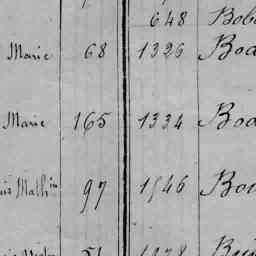 648 Bob
Marie 68 1326 Boa
Marie 165 1334 Boa
Mathin 97 1546 Bou
51 1978